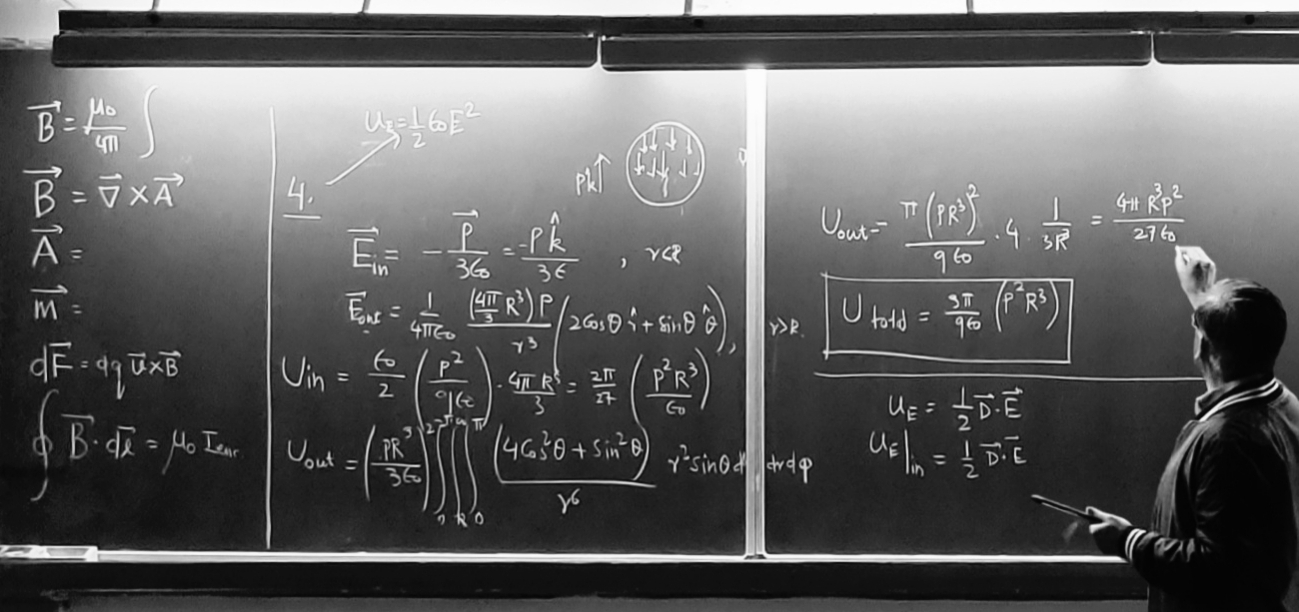 B⃗ = μ₀/4π ∫
B⃗ = ∇⃗ × A⃗
A⃗ =
m⃗ =
dF⃗ = dq v⃗×B⃗
∮ B⃗ · dℓ⃗ = μ₀ I
u_E = 1/2 ϵ₀E²
4.
Pk̂↑
E⃗_in = - P⃗/3ϵ₀ = -Pk̂/3ϵ , r<R
E⃗_out = 1/4πϵ₀ (4π/3 R³)P/r³ (2cosθ r̂ + sinθ θ̂), r>R
U_in = ϵ₀/2 (P²/9ϵ₀) · 4πR³/3 = 2π/27 (P²R³/ϵ₀)
U_out = (PR³/3ϵ₀)² ∫∫∫ (4cos²θ + sin²θ)/r⁶ r²sinθ d drdφ
U_out = π(PR³)²/9ϵ₀ · 4 · 1/3R³ = 4πR³P²/27ϵ₀
U_total = π/9ϵ₀ (P²R³)
u_E = 1/2 D⃗·E⃗
u_E|_in = 1/2 D⃗·E⃗